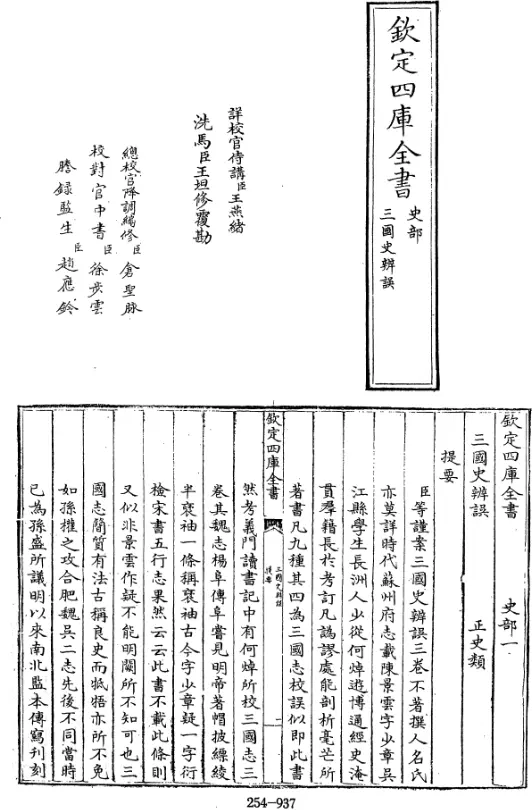 欽定四庫全書
史部
三國史辨誤
詳校官侍講臣王燕緒
洗馬臣王坦修覆勘
總校官降調編修臣倉聖脉
校對官中書臣徐步雲
謄錄監生臣趙應鈴
欽定四庫全書 史部一
三國史辨誤 正史類
提要
臣等謹案三國史辨誤三卷不著撰人名氏
亦莫詳時代蘇州府志載陳景雲字少章吳
江縣學生長洲人少從何焯遊博通經史淹
貫羣籍長於考訂凡譌謬處能剖析毫芒所
著書凡九種其四為三國志校誤似即此書
欽定四庫全書
三國史辨誤
提要
一
然考義門讀書記中有何焯所校三國志三
卷其魏志楊阜傳阜嘗見明帝著帽披縹綾
半褎袖一條稱褎袖古今字少章疑一字衍
檢宋書五行志果然云云此書不載此條則
又似非景雲作疑不能明闕所不知可也三
國志簡質有法古稱良史而牴牾亦所不免
如孫權之攻合肥魏吳二志先後不同當時
已為孫盛所議明以來南北監本傳寫刊刻
254-937